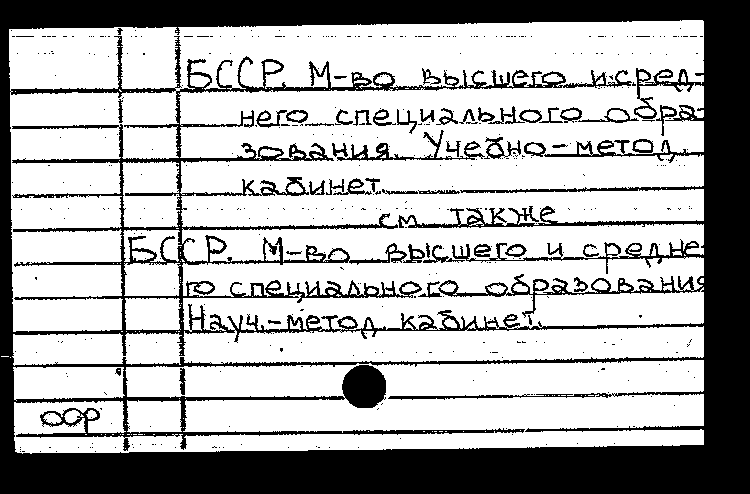 БССР. М-во высшего и сред-
него специального обра-
зования. Учебно-метод.
кабинет.
см. также
БССР. М-во высшего и средне-
го специального образования
Науч.-метод. кабинет.
оор